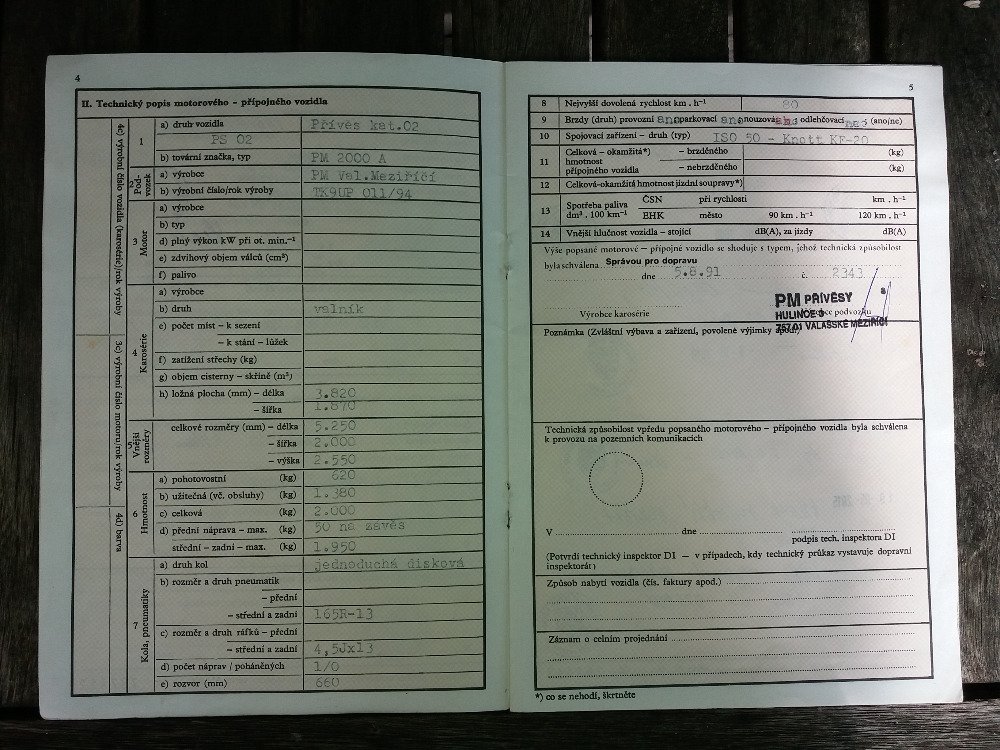 4
II. Technický popis motorového – přípojného vozidla
4c) výrobní číslo vozidla (karosérie)/rok výroby
3c) výrobní číslo motoru/rok výroby
4d) barva
1
a) druh vozidla Přívěs kat.02
PS 02
b) tovární značka, typ PM 2000 A
2 Podvozek
a) výrobce PM Val.Meziříčí
b) výrobní číslo/rok výroby TK9UP 011/94
3 Motor
a) výrobce
b) typ
d) plný výkon kW při ot. min.⁻¹
e) zdvihový objem válců (cm³)
f) palivo
4 Karosérie
a) výrobce
b) druh valník
c) počet míst – k sezení
– k stání – lůžek
f) zatížení střechy (kg)
g) objem cisterny – skříně (m³)
h) ložná plocha (mm) – délka 3.820
– šířka 1.870
5 Vnější rozměry
celkové rozměry (mm) – délka 5.250
– šířka 2.000
– výška 2.550
6 Hmotnost
a) pohotovostní (kg) 620
b) užitečná (vč. obsluhy) (kg) 1.380
c) celková (kg) 2.000
d) přední náprava – max. (kg) 50 na závěs
střední – zadní – max. (kg) 1.950
7 Kola, pneumatiky
a) druh kol jednoduchá disková
b) rozměr a druh pneumatik
– přední
– střední a zadní 165R-13
c) rozměr a druh ráfků – přední
– střední a zadní 4,5Jx13
d) počet náprav / poháněných 1/0
e) rozvor (mm) 660
5
8 Nejvyšší dovolená rychlost km . h⁻¹ 80
9 Brzdy (druh) provozní ano parkovací ano nouzová odlehčovací (ano/ne)
10 Spojovací zařízení – druh (typ) ISO 50 – Knott KF-20
11 Celková – okamžitá*) – brzděného (kg)
hmotnost
přípojného vozidla – nebrzděného (kg)
12 Celková-okamžitá hmotnost jízdní soupravy*)
13 Spotřeba paliva ČSN při rychlosti km . h⁻¹
dm³ . 100 km⁻¹ EHK město 90 km . h⁻¹ 120 km . h⁻¹
14 Vnější hlučnost vozidla – stojící dB(A), za jízdy dB(A)
Výše popsané motorové – přípojné vozidlo se shoduje s typem, jehož technická způsobilost
byla schválena Správou pro dopravu
dne 5.8.91 č. 2343
PM PŘÍVĚSY
Výrobce karosérie HULINCE výrobce podvozku
757 01 VALAŠSKÉ MEZIŘÍČÍ
Poznámka (Zvláštní výbava a zařízení, povolené výjimky apod.)
Technická způsobilost vpředu popsaného motorového – přípojného vozidla byla schválena
k provozu na pozemních komunikacích
V dne
podpis tech. inspektora DI
(Potvrdí technický inspektor DI — v případech, kdy technický průkaz vystavuje dopravní
inspektorát)
Způsob nabytí vozidla (čís. faktury apod.)
Záznam o celním projednání
*) co se nehodí, škrtněte